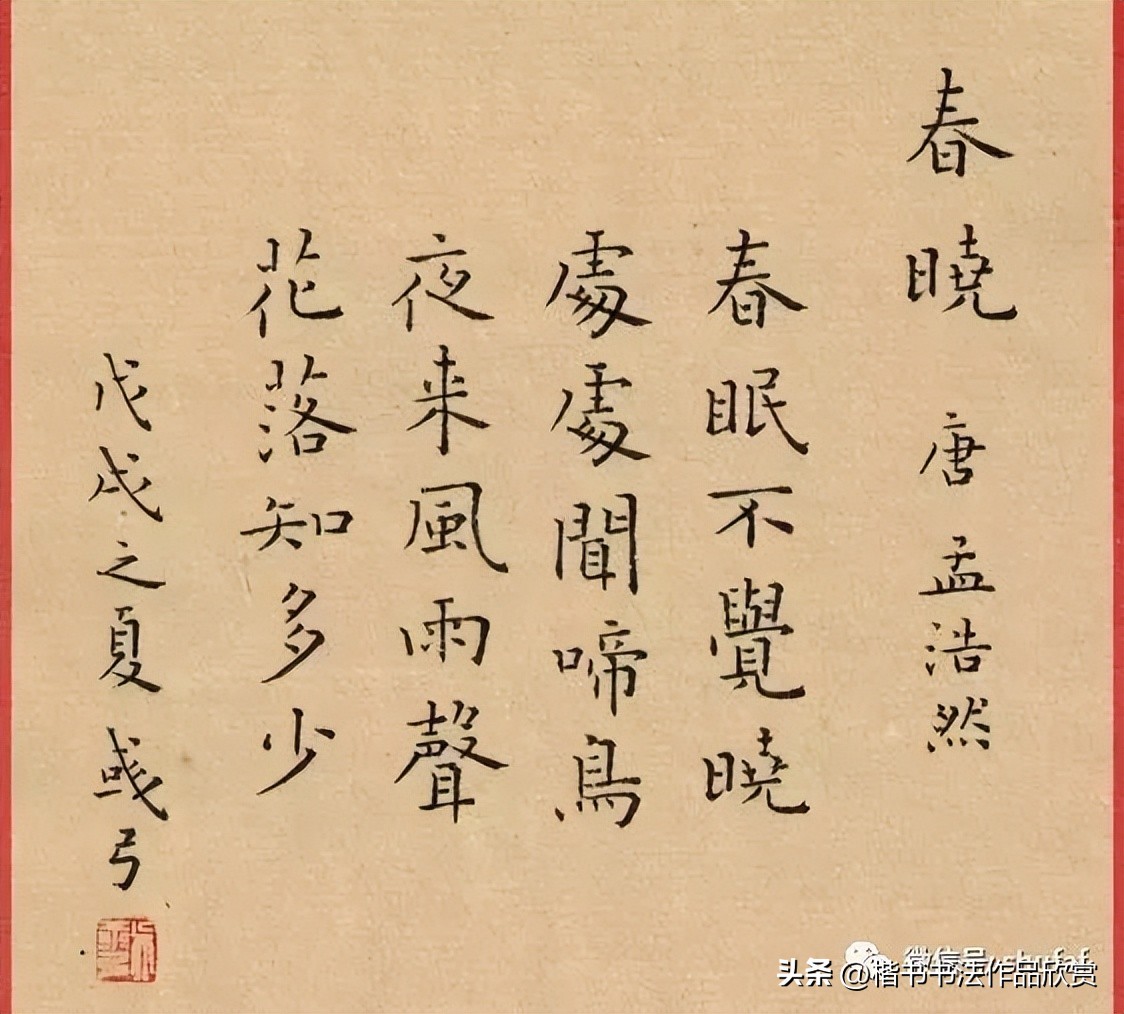 春曉 唐 孟浩然
春眠不覺曉
處處聞啼鳥
夜来風雨聲
花落知多少
戊戌之夏 彧弓
头条 @楷书书法作品欣赏